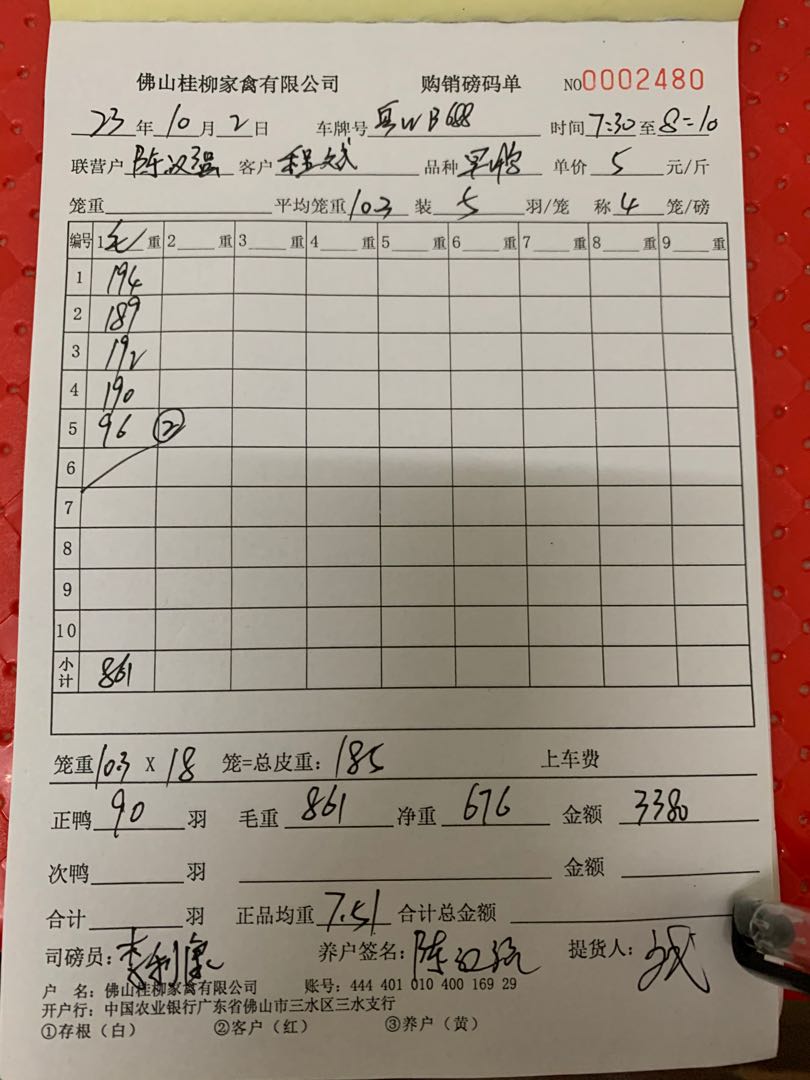 佛山桂柳家禽有限公司 购销磅码单 NO0002480
23年10月2日 车牌号 WB688 时间7:30至8=10
联营户 陈汉强 客户 程 品种 单价 5 元/斤
笼重 平均笼重10.3 装 5 羽/笼 称 4 笼/磅
编号 1毛重 2 重 3 重 4 重 5 重 6 重 7 重 8 重 9 重
1 194
2 189
3 192
4 190
5 96 ②
6
7
8
9
10
小计 861
笼重10.3 X 18 笼=总皮重：185 上车费
正鸭 90 羽 毛重 861 净重 676 金额 3380
次鸭 羽 金额
合计 羽 正品均重 7.51 合计总金额
司磅员：李利 养户签名：陈汉强 提货人：
户 名：佛山桂柳家禽有限公司 账号：444 401 010 400 169 29
开户行：中国农业银行广东省佛山市三水区三水支行
①存根（白） ②客户（红） ③养户（黄）